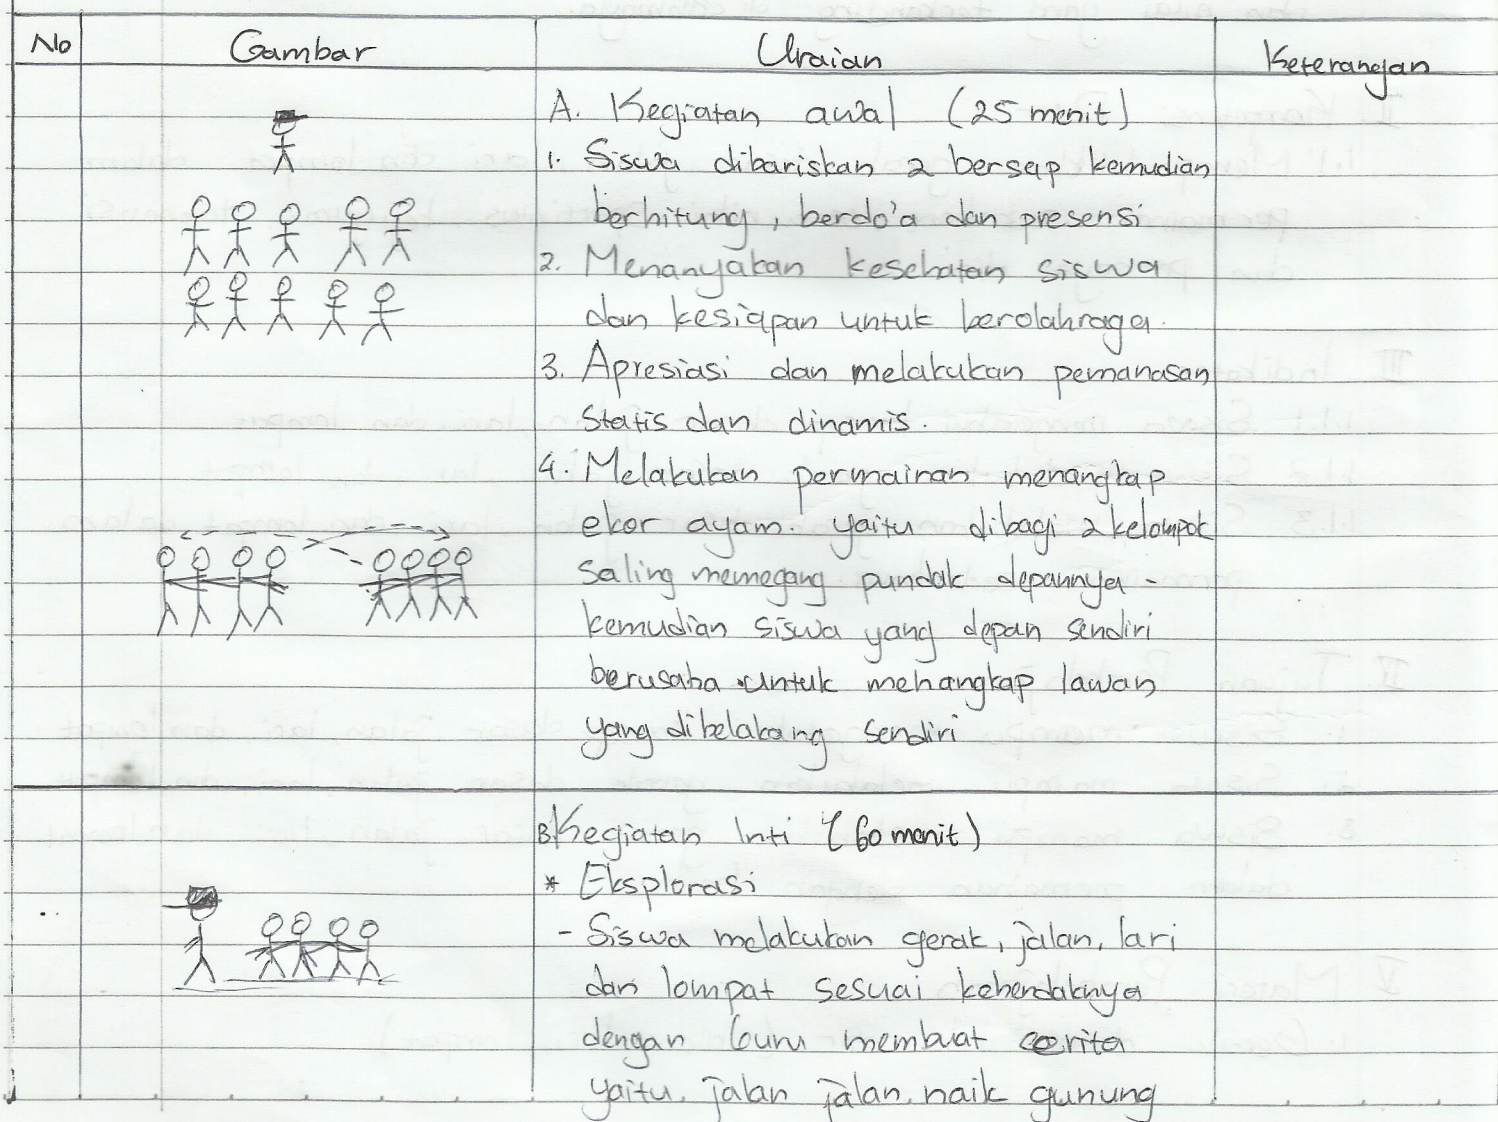 No Gambar Uraian Keterangan
A. Kegiatan awal (25 menit)
1. Siswa dibariskan 2 bersap kemudian
berhitung, berdo'a dan presensi
2. Menanyakan kesehatan siswa
dan kesiapan untuk berolahraga.
3. Apresiasi dan melakukan pemanasan
statis dan dinamis.
4. Melakukan permainan menangkap
ekor ayam. yaitu dibagi 2 kelompok
saling memegang pundak depannya -
kemudian siswa yang depan sendiri
berusaha untuk menangkap lawan
yang dibelakang sendiri
B. Kegiatan Inti (60 menit)
* Eksplorasi
- Siswa melakukan gerak, jalan, lari
dan lompat sesuai kehendaknya
dengan Guru membuat cerita
yaitu, jalan jalan, naik gunung